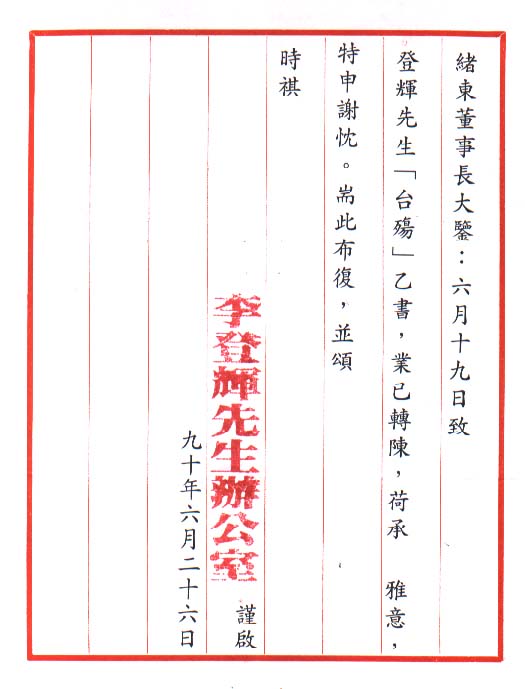 緒東董事長大鑒：六月十九日致
登輝先生「台殤」乙書，業已轉陳，荷承　雅意，
特申謝忱。耑此布復，並頌
時祺
李登輝先生辦公室　謹啟
九十年六月二十六日